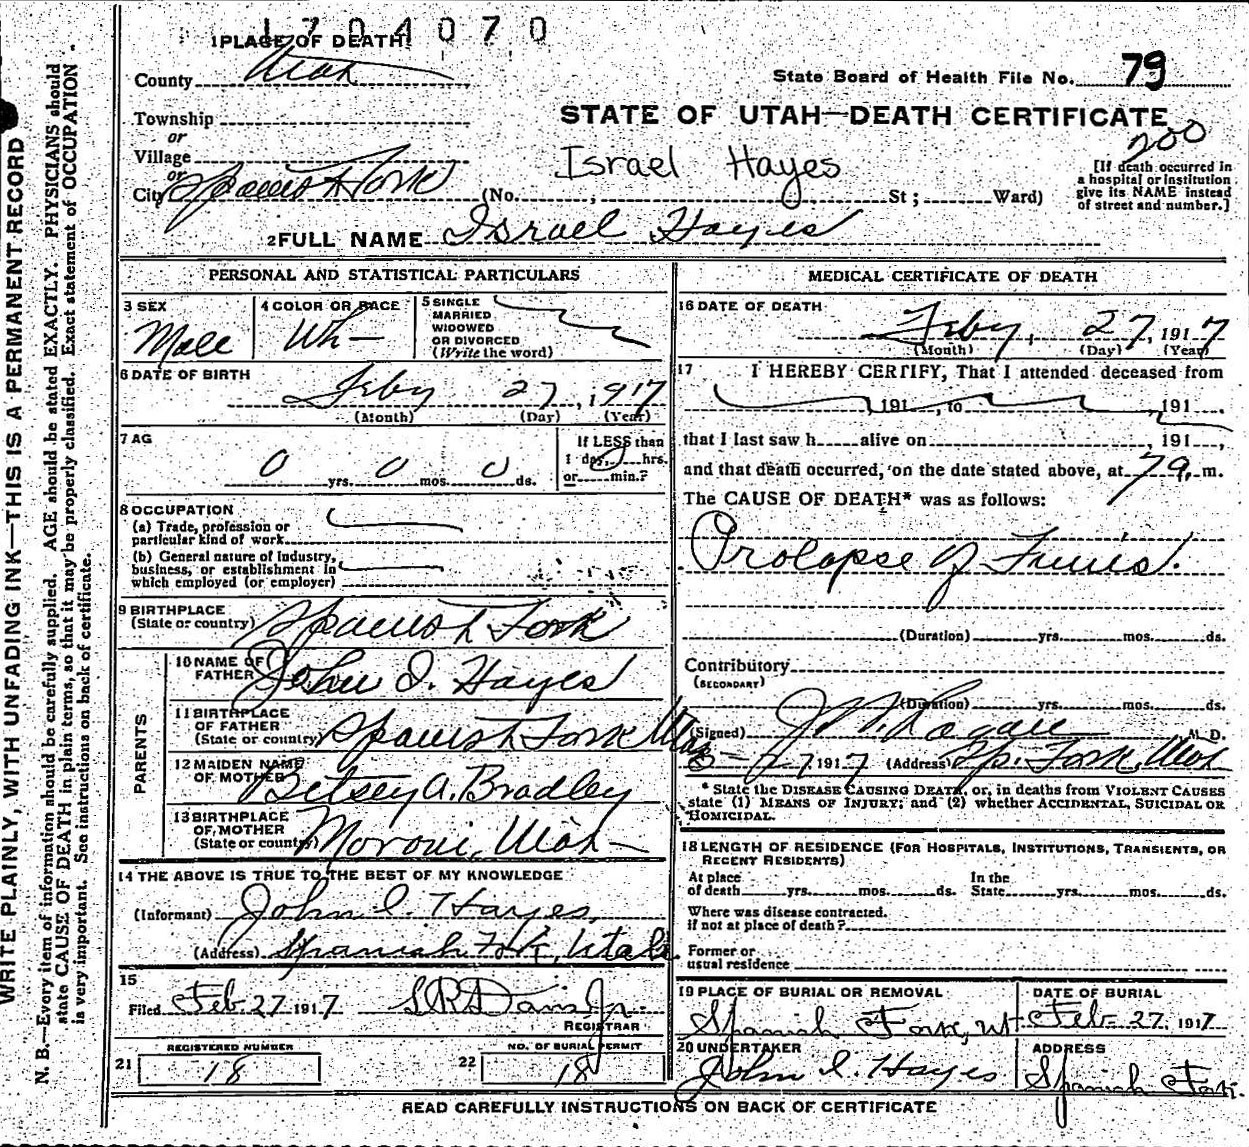 1704070
1 PLACE OF DEATH
County Utah
State Board of Health File No. 79
Township
or
Village
or
City Spanish Fork (No. , St ; Ward)
STATE OF UTAH—DEATH CERTIFICATE
200
Israel Hayes
[If death occurred in
a hospital or institution
give its NAME instead
of street and number.]
2 FULL NAME Israel Hayes
PERSONAL AND STATISTICAL PARTICULARS
3 SEX
Male
4 COLOR OR RACE
Wh—
5 SINGLE
MARRIED
WIDOWED
OR DIVORCED
(Write the word)
6 DATE OF BIRTH
Feby 27, 1917
(Month) (Day) (Year)
7 AG
0 yrs. 0 mos. 0 ds.
If LESS than
1 day, 0 hrs.
or min.?
8 OCCUPATION
(a) Trade, profession or
particular kind of work
(b) General nature of Industry,
business, or establishment in
which employed (or employer)
9 BIRTHPLACE
(State or country) Spanish Fork
PARENTS
10 NAME OF
FATHER John I. Hayes
11 BIRTHPLACE
OF FATHER
(State or country) Spanish Fork Utah
12 MAIDEN NAME
OF MOTHER Betsey A. Bradley
13 BIRTHPLACE
OF MOTHER
(State or country) Moroni, Utah—
14 THE ABOVE IS TRUE TO THE BEST OF MY KNOWLEDGE
(Informant) John I. Hayes,
(Address) Spanish Fork, Utah
15
Filed Feb 27 1917 Davis Jr.
REGISTRAR
REGISTERED NUMBER
21 18
NO. OF BURIAL PERMIT
22 18
MEDICAL CERTIFICATE OF DEATH
16 DATE OF DEATH
Feby, 27, 1917
(Month) (Day) (Year)
17 I HEREBY CERTIFY, That I attended deceased from
, 191 , to 191 .
that I last saw h alive on , 191 ,
and that death occurred, on the date stated above, at 7 a. m.
The CAUSE OF DEATH* was as follows:
Prolapse of Funis.
(Duration) yrs. mos. ds.
Contributory
(SECONDARY)
(Duration) yrs. mos. ds.
(Signed) M. D.
27 1917 (Address) Sp. Fork, Utah
* State the DISEASE CAUSING DEATH, or, in deaths from VIOLENT CAUSES
state (1) MEANS OF INJURY; and (2) whether ACCIDENTAL, SUICIDAL OR
HOMICIDAL.
18 LENGTH OF RESIDENCE (FOR HOSPITALS, INSTITUTIONS, TRANSIENTS, OR
RECENT RESIDENTS)
At place
of death yrs. mos. ds.
In the
State yrs. mos. ds.
Where was disease contracted.
if not at place of death?
Former or
usual residence
19 PLACE OF BURIAL OR REMOVAL
Spanish Fork, Ut
DATE OF BURIAL
Feb 27, 1917
20 UNDERTAKER
John I. Hayes
ADDRESS
Spanish Fork.
READ CAREFULLY INSTRUCTIONS ON BACK OF CERTIFICATE
WRITE PLAINLY, WITH UNFADING INK—THIS IS A PERMANENT RECORD
N. B.—Every item of information should be carefully supplied. AGE should be stated EXACTLY. PHYSICIANS should
state CAUSE OF DEATH in plain terms, so that it may be properly classified. Exact statement of OCCUPATION
is very important. See instructions on back of certificate.